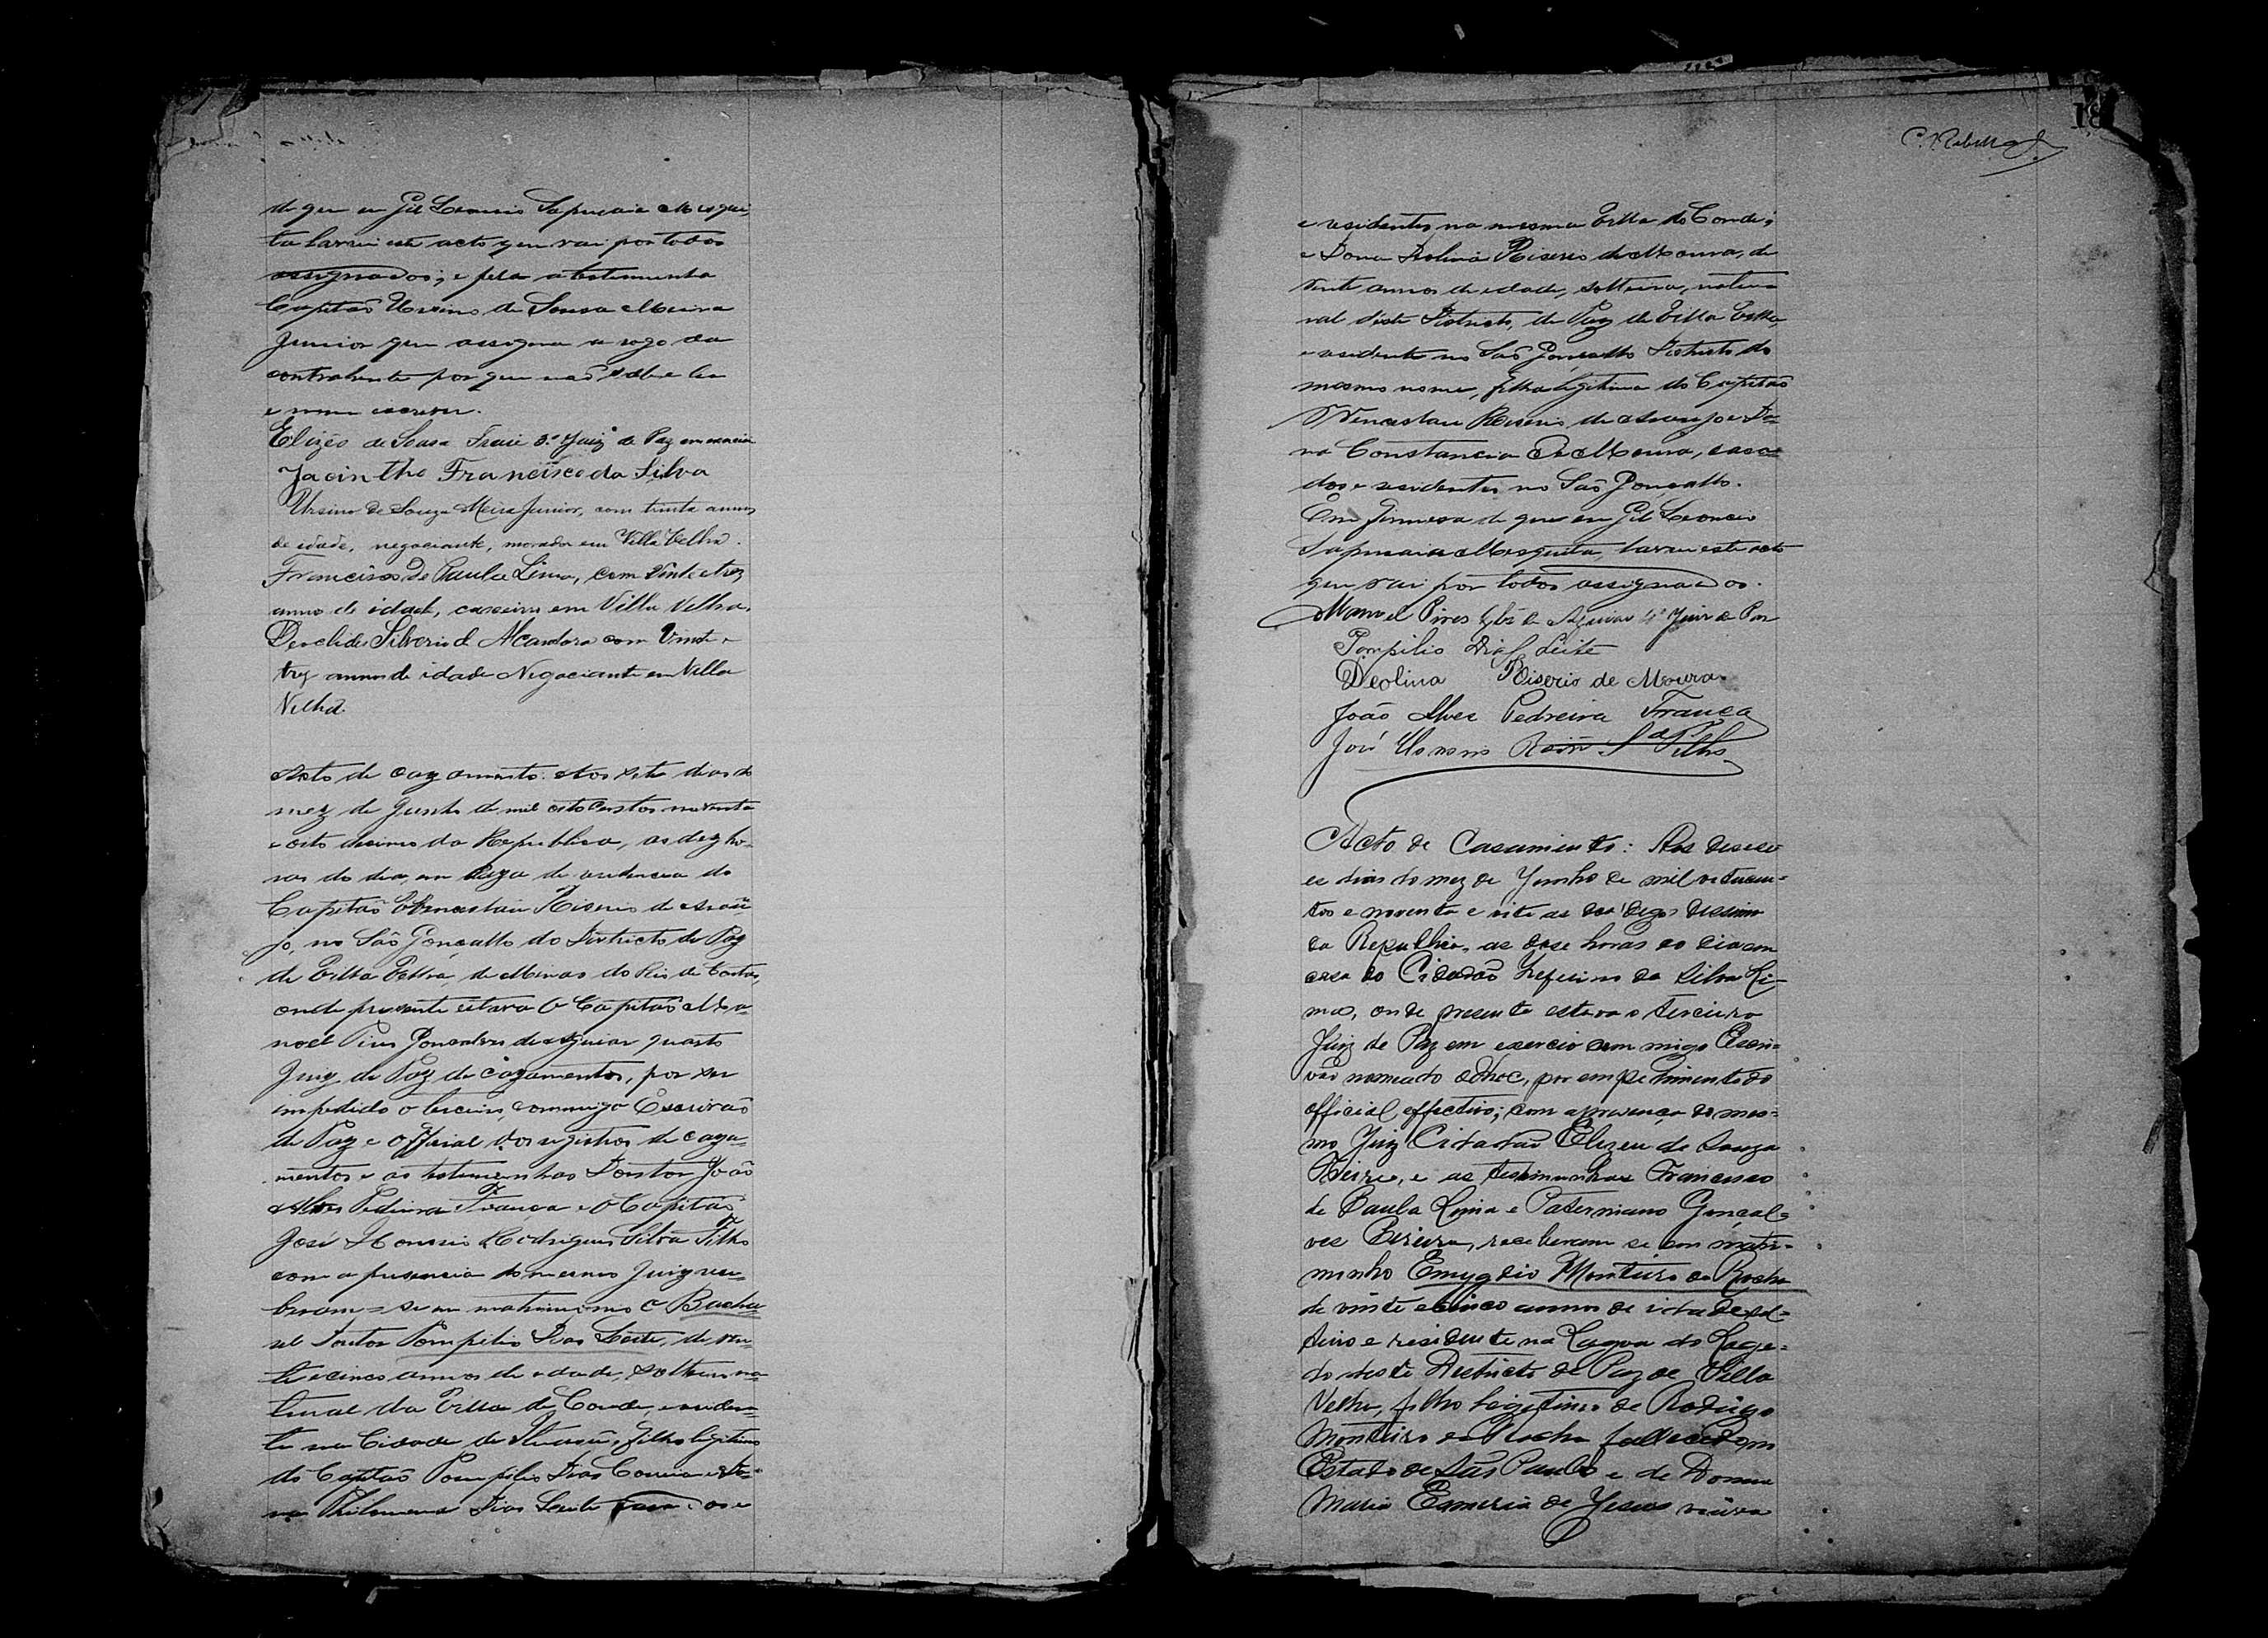 de que eu Gil Leoncio Sapucaia Mesqui,
ta lavrei este acto que vai por todos
assignados; e pela a testemunha
Capitão Ursino de Sousa Meira
Junior que assigna a rogo da
contrahente por que não sabe ler
e nem escrever.
Elizeo de Sousa Freire 3.º Juiz de Paz em exercicio
Jacintho Francisco da Silva
Ursino de Souza Meira Junior, com trinta annos
de idade, negociante, morador em Villa Velha.
Francisco de Paula Lima, com vinte e trez
annos de idade, caxeiro em Villa Velha.
Deoclides Silverio d' Alcantara com Vinte e
trez annos de idade Negociante em Villa
Velha
Acto de cazamento. Aos sete dias do
mez de Junho de mil oitocentos noventa
e oito decimo da Republica, as dez ho-
ras do dia, em caza de rezidencia do
Capitão Wencesláu Rizerio de Araú-
jo, no São Gonçallo do Districto de Paz
de Villa Velha, de Minas do Rio de Contas,
onde prezente estava O Capitão Ma-
noel Pires Gonsalves de Aguiar quarto
Juiz de Paz de cazamentos, por ser
impedido o terceiro, commigo Escrivão
de Paz e Official dos registros de caza-
mentos e as testemunhas Doutor João
Alves Pedreira França e O Capitão
José Honorio Rodrigues Silva Filho
com a presencia do mesmo Juiz rece-
beram=se em matrimonio O Bacha-
rel Doutor Pompilio Dias Leite, de vin-
te e cinco annos de idade, solteiro na-
tural da Villa do Conde, e residen-
te na Cidade de Ituassú, filho legitimo
do Capitão Pompilio Dias Correia e Do-
na Philomena Dias Leite casados e
18
C. Rebello
e residentes na mesma Villa do Conde;
e Dona Deolina Riserio de Moura, de
vinte annos de idade, solteira, natu-
ral d'este Districto de Paz de Villa Velha,
e residente no São Gonçallo Districto do
mesmo nome, filha legitima do Capitão
Wenceslau Riserio de Araujo e Do-
na Constancia de Moura, casa-
dos e residentes no São Gonçallo.
Em firmesa do que eu Gil Leoncio
Sapucaia Mesquita, lavrei este acto
que vai por todos assignados.
Manoel Pires Glz de Aguiar 4º Juiz de Paz
Pompilio Dias Leite
Deolina Riserio de Moura
João Alves Pedreira Franca
José Honorio Roiz Sª Filho
Acto de Casamento: Aos desese-
es dias do mez de Junho de mil oitocen-
tos e noventa e oito decimo
da Republica, as dose horas do dia em
casa do Cidadão Zeferino da Silva Li-
ma, onde presente estava o terceiro
Juiz de Paz em exercio commigo Escri-
vão nomeado adhoc, por empedimento do
official effectivo; com a presença do mes-
mo Juiz Cidadão Elizeu de Souza
Freire, e as testimunhas Francisco
de Paula Lima e Paterniano Gonçal-
ves Pereira, receberam se em matri-
monho Emygdio Monteiro da Rocha
de vinte e cinco annos de idade sol-
teiro e residente na Lagoa do Lage-
do deste Districto de Paz de Villa
Velha, filho legitimo de Rodrigo
Monteiro da Rocha fallecido em
Estado de São Paulo e de Donna
Maria Esmeria de Jesus viúva